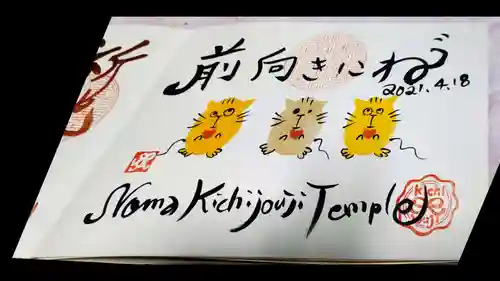 前向きにねっ
2021.4.18
Noma Kichijouji Temple